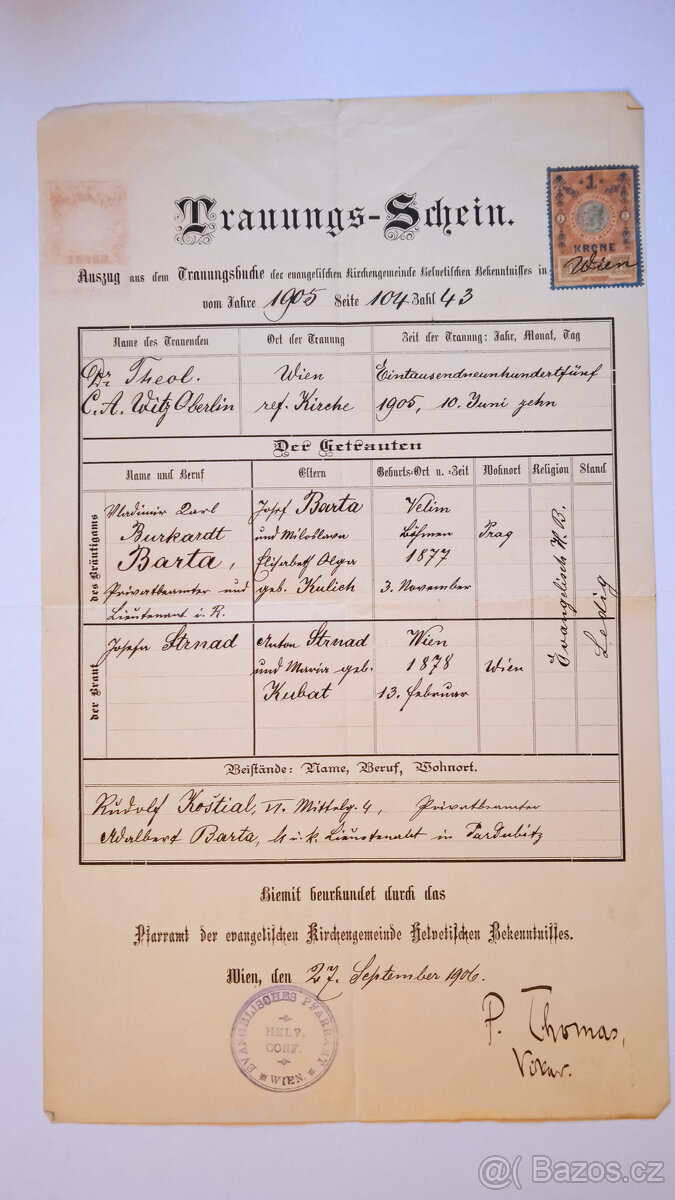 Trauungs-Schein.
1
KRONE
Wien
Auszug aus dem Trauungsbuche der evangelischen Kirchengemeinde Helvetischen Bekenntnisses in
vom Jahre 1905 Seite 104 Zahl 43
Name des Trauenden Ort der Trauung Zeit der Trauung: Jahr, Monat, Tag
Dr Theol. Wien Eintausendneunhundertfünf
C. A. Witz Oberlin ref. Kirche 1905, 10. Juni zehn
Der Getrauten
Name und Beruf Eltern Geburts-Ort u. -Zeit Wohnort Religion Stand
des Bräutigams
Vladimir Karl Josef Barta Velim
Burkardt und Miloslava Böhmen Prag
Barta, Elisabeth Olga 1877
Privatbeamter und geb. Kulich 3. November
Lieutenant i. R.
Evangelisch H. B.
Ledig
der Braut
Josefa Strnad Anton Strnad Wien
und Maria geb. 1878 Wien
Kubat 13. Februar
Beistände: Name, Beruf, Wohnort.
Rudolf Koštial, VI. Mittelg. 4, Privatbeamter
Adalbert Barta, k. u. k. Lieutenant in Pardubitz
Hiemit beurkundet durch das
Pfarramt der evangelischen Kirchengemeinde Helvetischen Bekenntnisses.
Wien, den 27. September 1906.
EVANGELISCHES PFARRAMT
HELV.
CONF.
WIEN
P. Thomas,
Vikar.
@ Bazos.cz